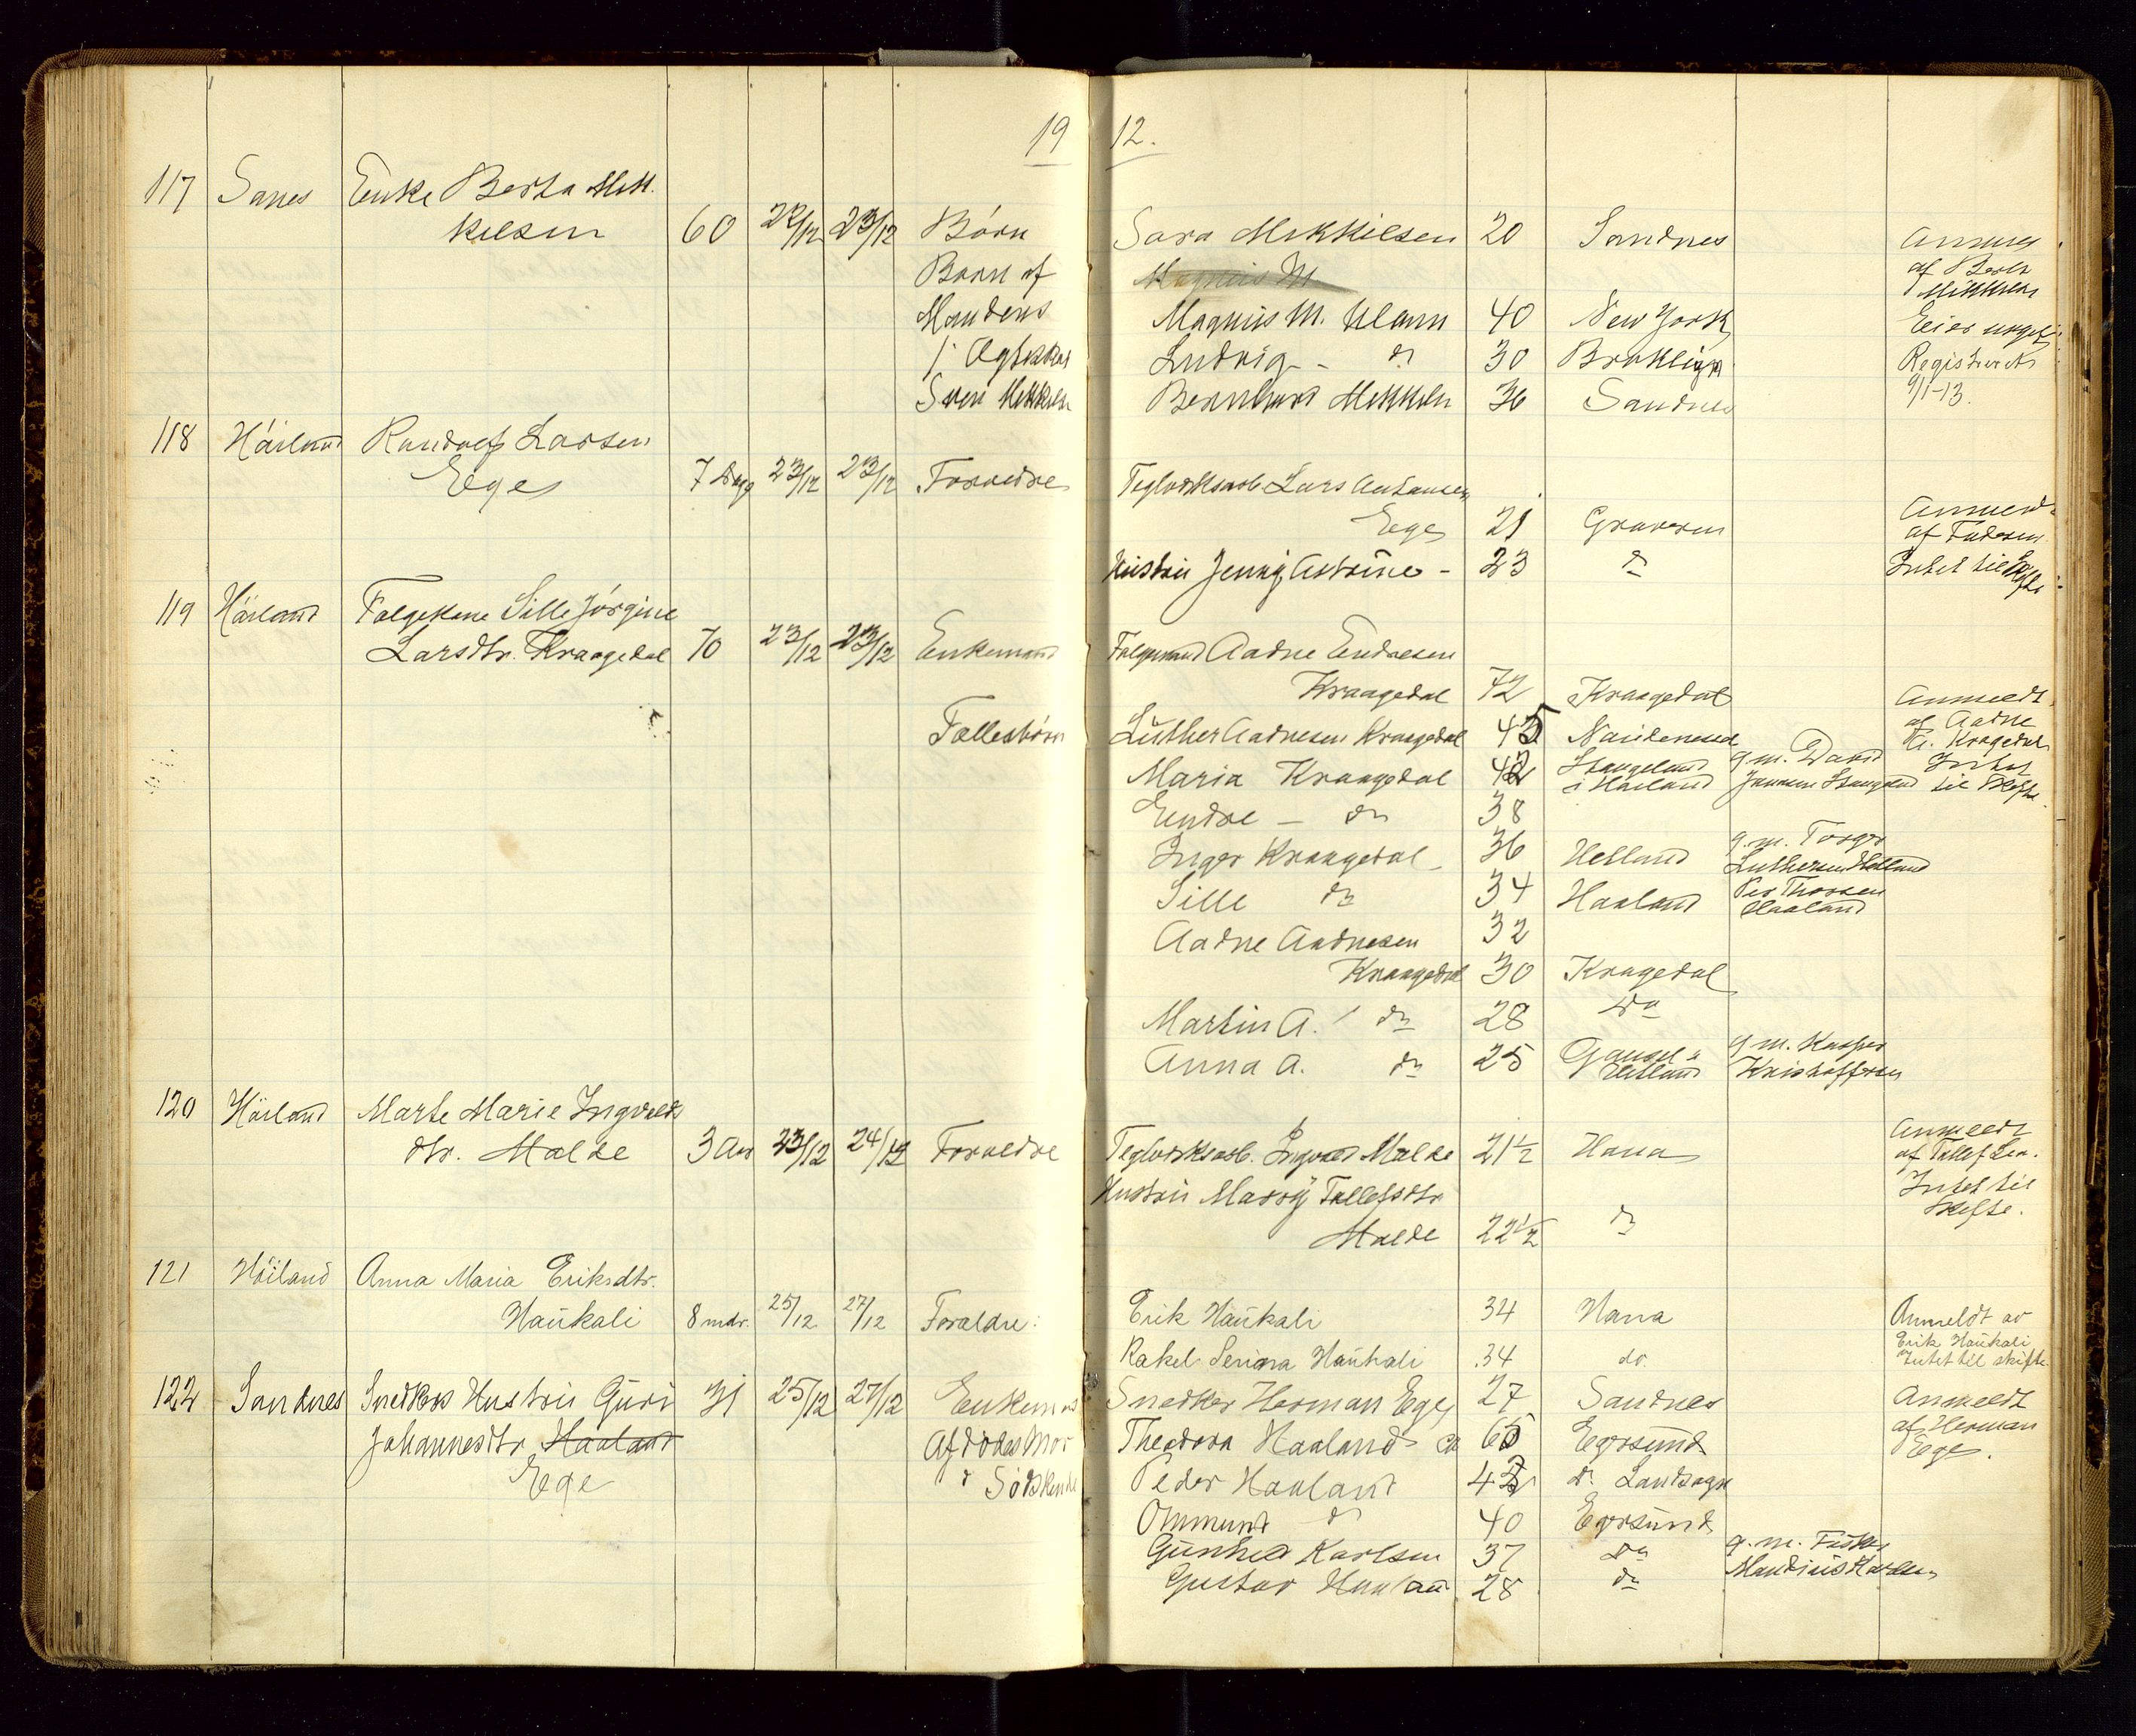 19 12.
117 Sanes Enke Berta Mik
kelsen 60 22/12 23/12 Börn Sara Mikkelsen 20 Sandnes Anmeldt
Börn af af Berta
Mandens Magnus M. Ulann 40 New York Mikkelsen
1. Ægteskab Ludvig - do 30 Brokling Eier
Sven Mikkelsen Bernhard Mikkelsen 36 Sandnes Registreret
9/1-13.
118 Höiland Randolf Larsen
Ege 7 Dage 23/12 23/12 Forældre Teglverksarb. Lars Antonsen
Ege 21 Graveren Anmeldt
af Faderen.
Hustru Jenny Astrine - 23 do Intet til Skifte
119 Höiland Folgekone Sille Jörgine
Larsdtr. Kraagedal 70 23/12 23/12 Enkemand Folgemand Aadne Endresen
Kraagedal 72 Kraagedal Anmeldt
Fællesbörn Luther Aadnesen Kraagedal 45 af Aadne
A. Kragedal
Maria Kraagedal 42 Stangeland i Höiland g.m. David Jansen Stangeland Intet til Skifte.
Endre - do 38
Inger Kraagedal - 36 Hetland g.m. Torger Luthersen Hetland
Sille do 34 Haaland Per Thorsen Haaland
Aadne Aadnesen 32
Kraagedal 30 Kragedal
Martin A. do 28 do
Anna A. do 25 Gausel i Hetland g.m. Kasper Kristoffersen
120 Höiland Marte Marie Ingvalds
dtr. Malde 3 Aar 23/12 24/12 Forældre Teglverksarb. Ingvald Malde 21½ Hana Anmeldt
af Tollef Lea.
Hustru Massy Tollefsdtr Intet til
Malde 22½ do Skifte.
121 Höiland Anna Maria Eriksdtr.
Haukali 8 mdr. 25/12 27/12 Forældre: Erik Haukali 34 Hana Anmeldt av
Erik Haukali
Rakel Serina Haukali 34 do. Intet til skifte.
122 Sandnes Snedkers Hustru Guri 31 25/12 27/12 Enkemand Snedker Herman Ege 27 Sandnes Anmeldt
Johannesdtr. Haaland Afdödes Mor Theodora Haaland ca 65 Egersund af Herman
Ege & Södskende Peder Haaland 42 do Landsogn Ege.
Ommund do 40 Egersund
Gunhild Karlsen 37 do g.m. Fisker
Gustav Haaland 28 do Mandius Karlsen